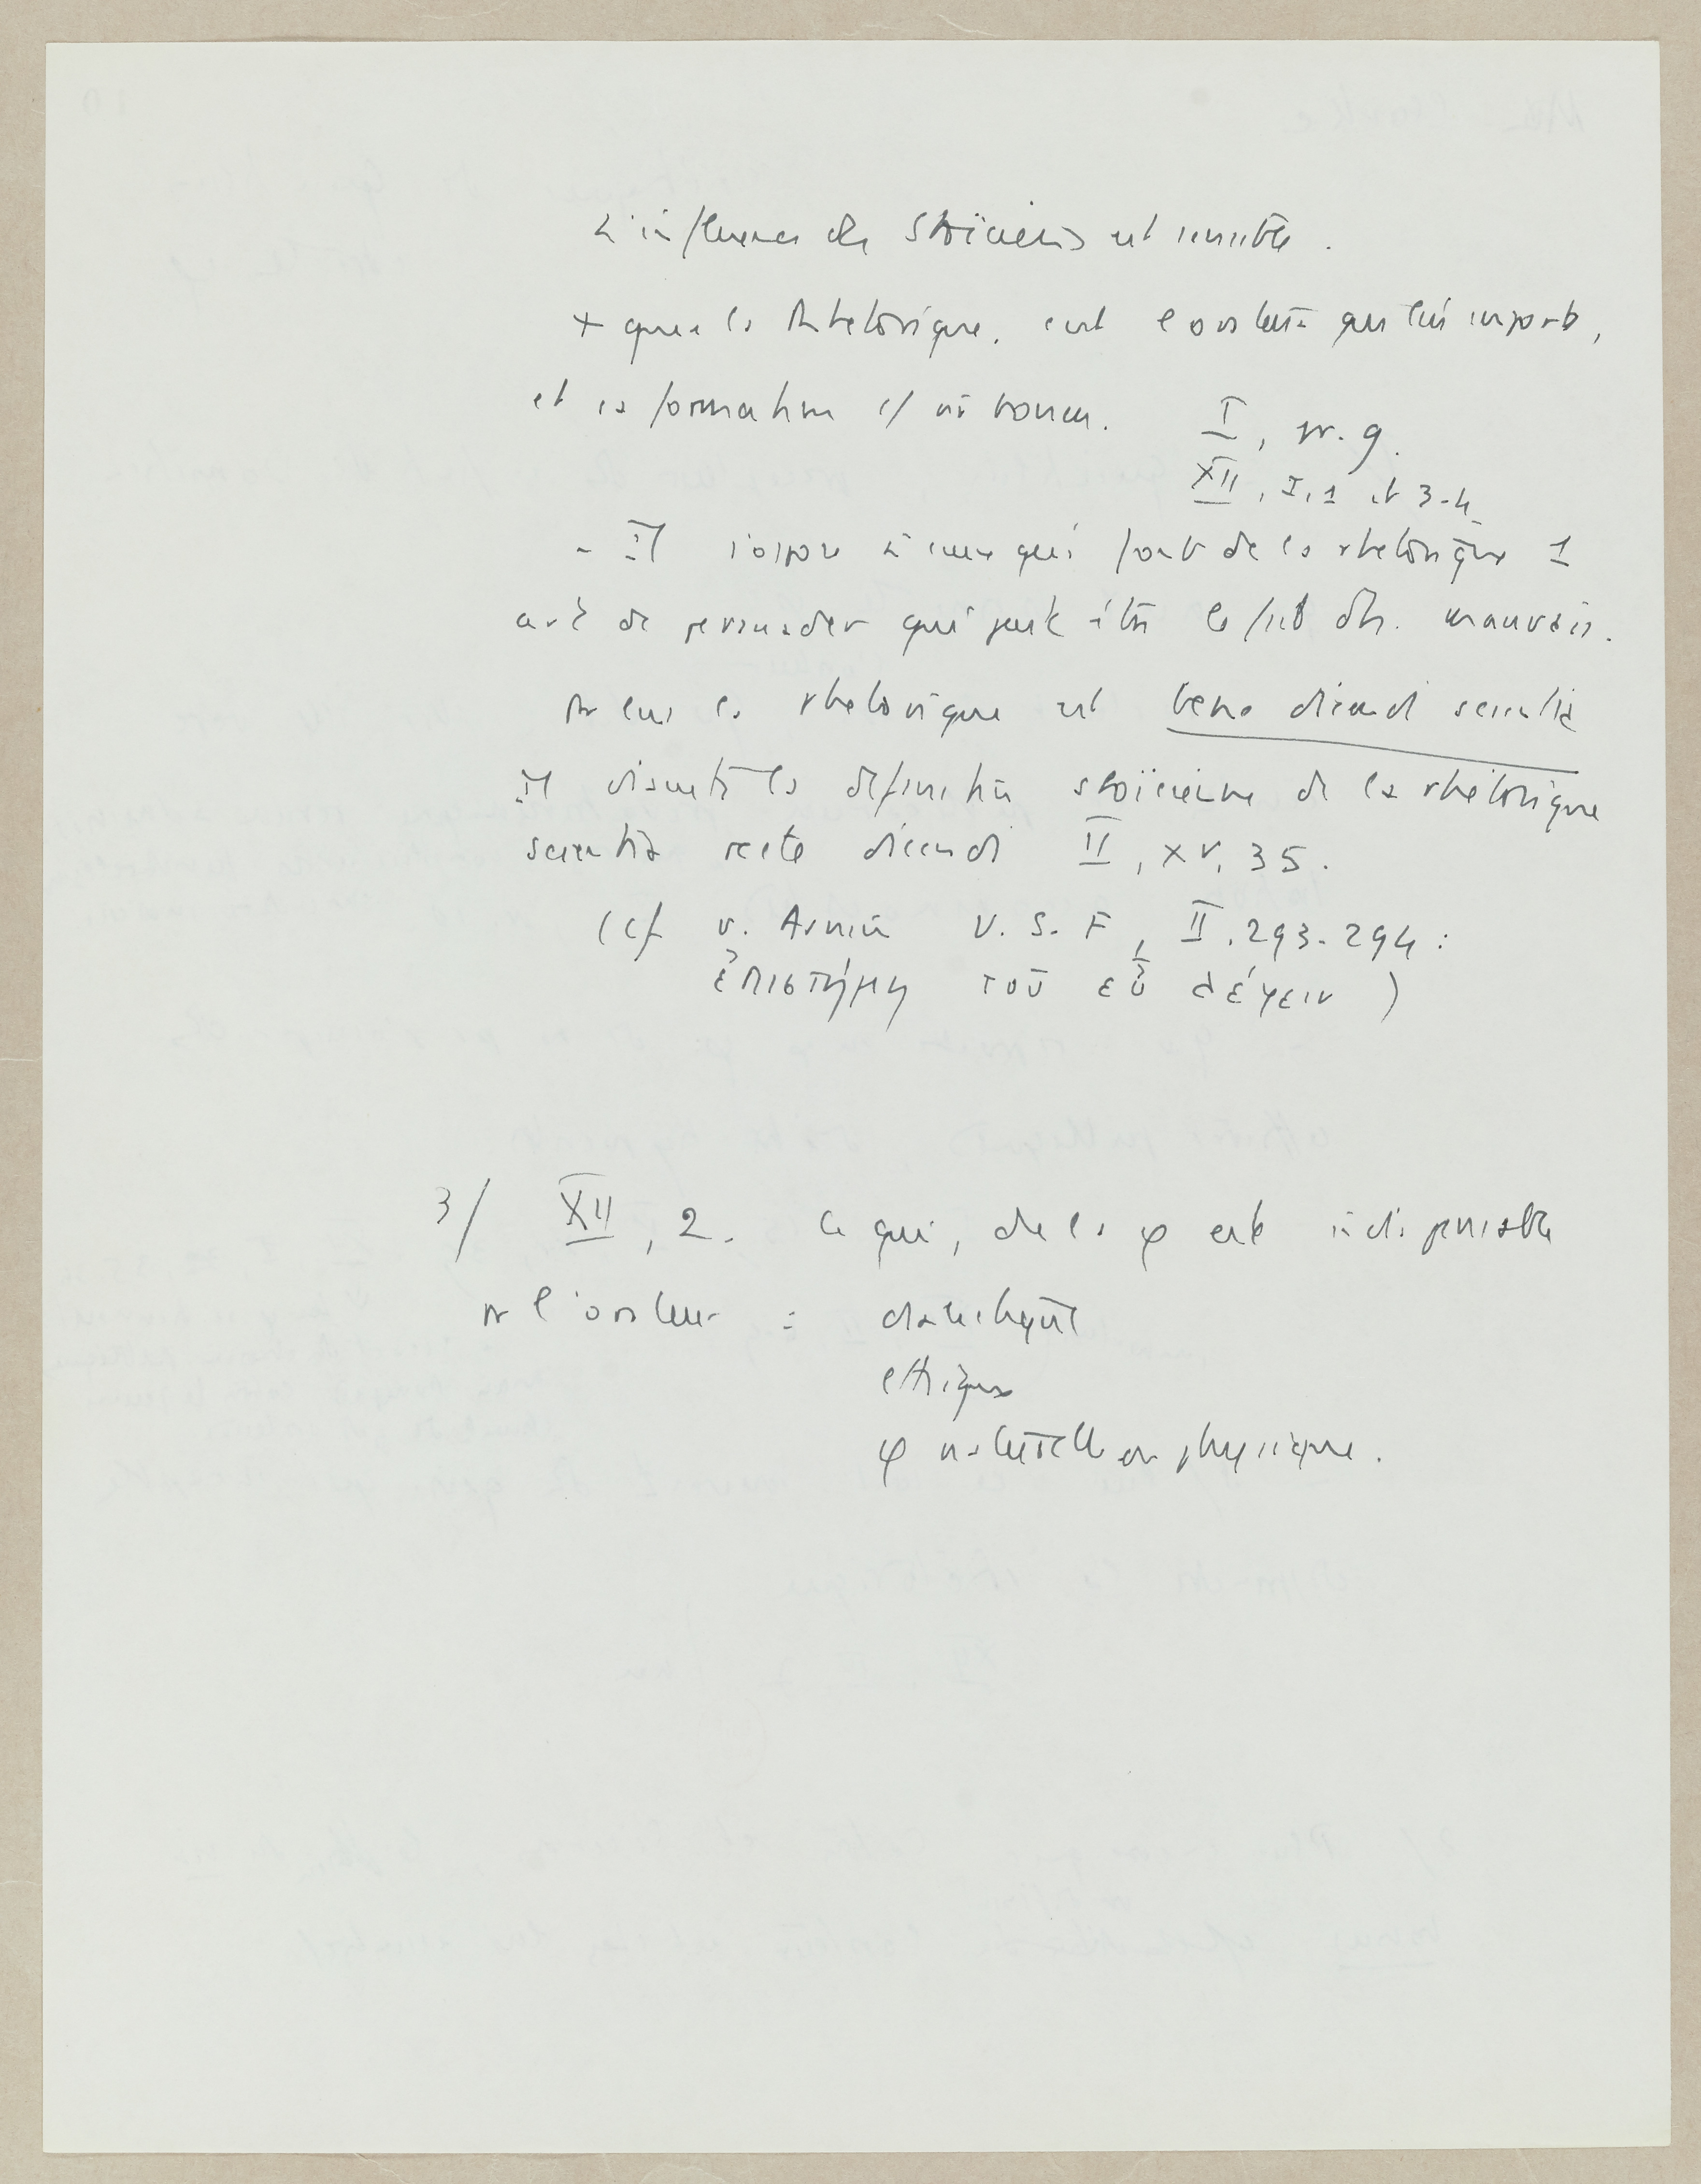 L'influence des Stoïciens est sensible.
+ que la Rhétorique, c'est l'orateur qui lui importe,
et sa formation cf vir bonus. I, pr. 9.
XII, I, 1 et 3-4
- Il s'oppose à ceux qui font de la rhétorique 1
art de persuader qui peut être le fait d'h. mauvais.
Pr lui la rhétorique est bene dicendi scientia
Il discute la définition stoïcienne de la rhétorique
scientia recte dicendi II, XV, 35.
(cf v. Arnim V. S. F, II. 293-294 :
ἐπιστήμη τοῦ εὖ λέγειν)
3/ XII, 2. Ce qui, de la φ est indispensable
pr l'orateur : dialectique
éthique
φ naturelle ou physique.